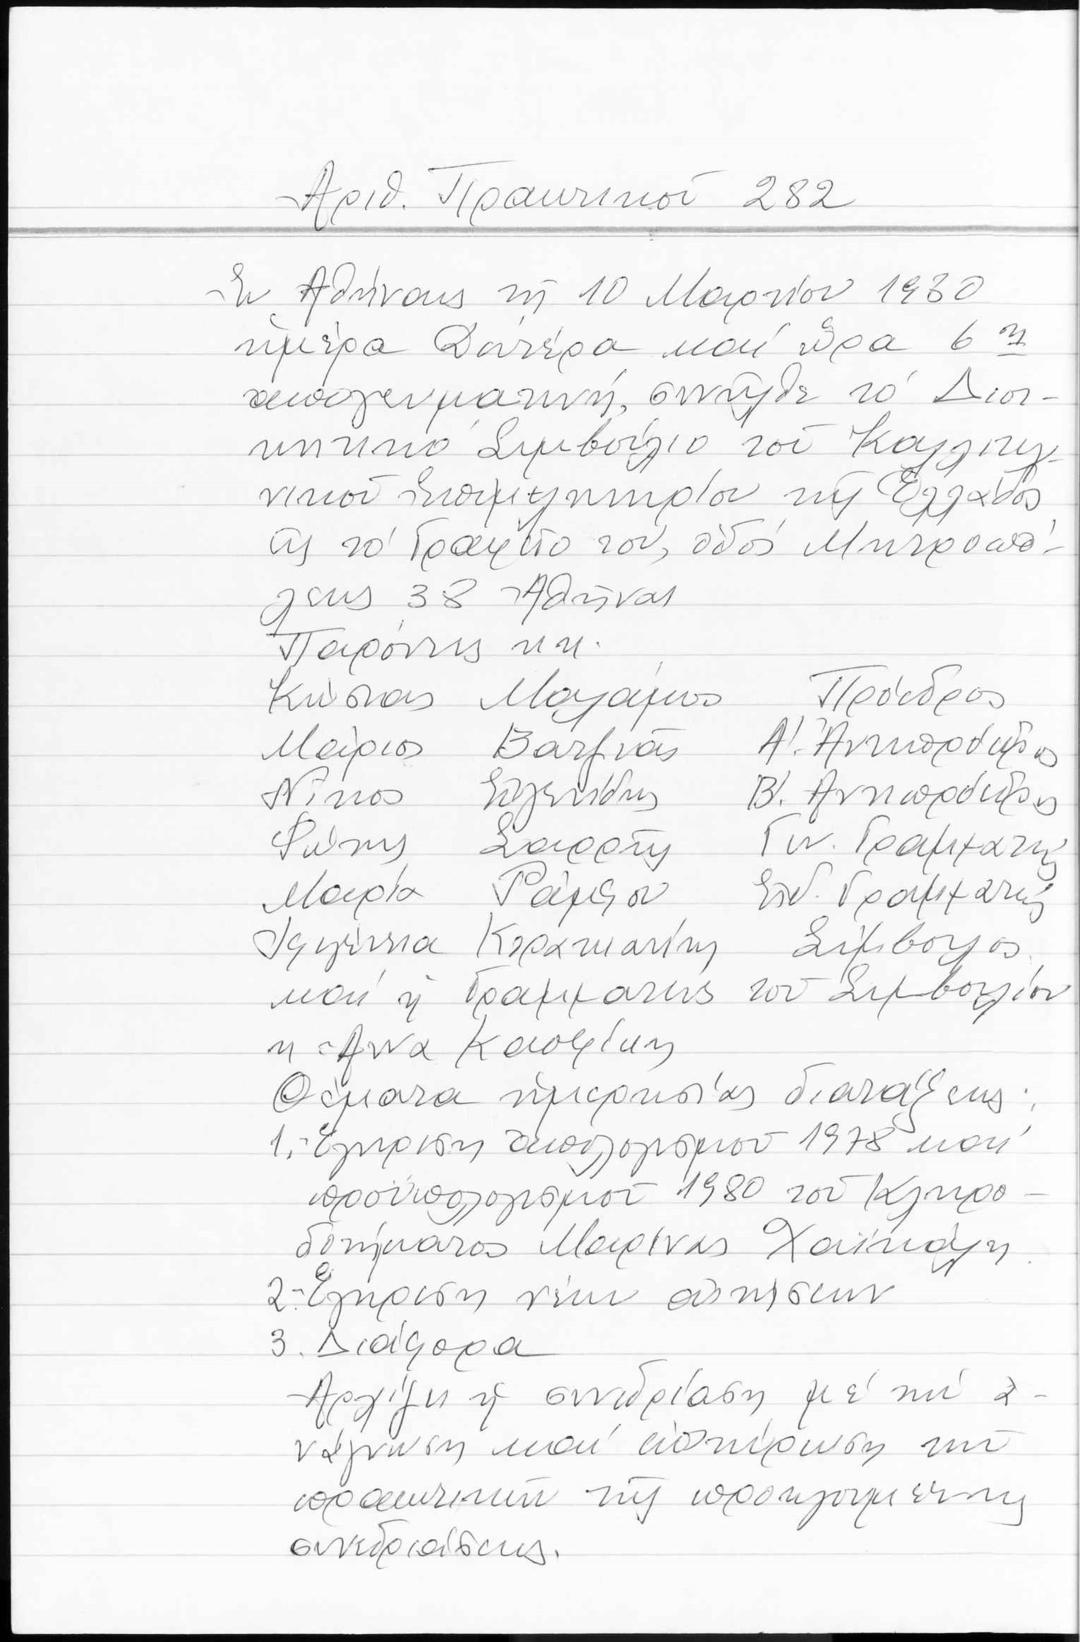 Ἀριθ. Πρακτικοῦ 282
Ἐν Ἀθήναις τῇ 10 Μαρτίου 1980
ἡμέρα Δευτέρα καί ὥρα 6η
ἀπογευματινή, συνῆλθε τό Διοι-
κητικό Συμβούλιο τοῦ Καλλιτεχ-
νικοῦ Ἐπιμελητηρίου τῆς Ἑλλάδος
εἰς τό Γραφεῖο του, ὁδός Μητροπό-
λεως 38 Ἀθῆναι
Παρόντες κ.κ.
Κώστας Μαλάμος Πρόεδρος
Μάριος Βατζιᾶς Α'. Ἀντιπρόεδρος
Νῖκος Β'. Ἀντιπρόεδρος
Φώτης Σαρρῆς Γεν. Γραμματεύς
Μαρία Εἰδ. Γραμματεύς
Ἰφιγένεια Σύμβουλος
καί ἡ Γραμματεύς τοῦ Συμβουλίου
κ Ἄννα
Θέματα ἡμερησίας διατάξεως:
1. Ἔγκριση ἀπολογισμοῦ 1978 καί
προϋπολογισμοῦ 1980 τοῦ Κληρο-
δοτήματος Μαρίνας
2. Ἔγκριση νέων αἰτήσεων
3. Διάφορα
Ἀρχίζει ἡ συνεδρίαση μέ τήν ἀ-
νάγνωση καί ἐπικύρωση τῶν
πρακτικῶν τῆς προηγουμένης
συνεδριάσεως.